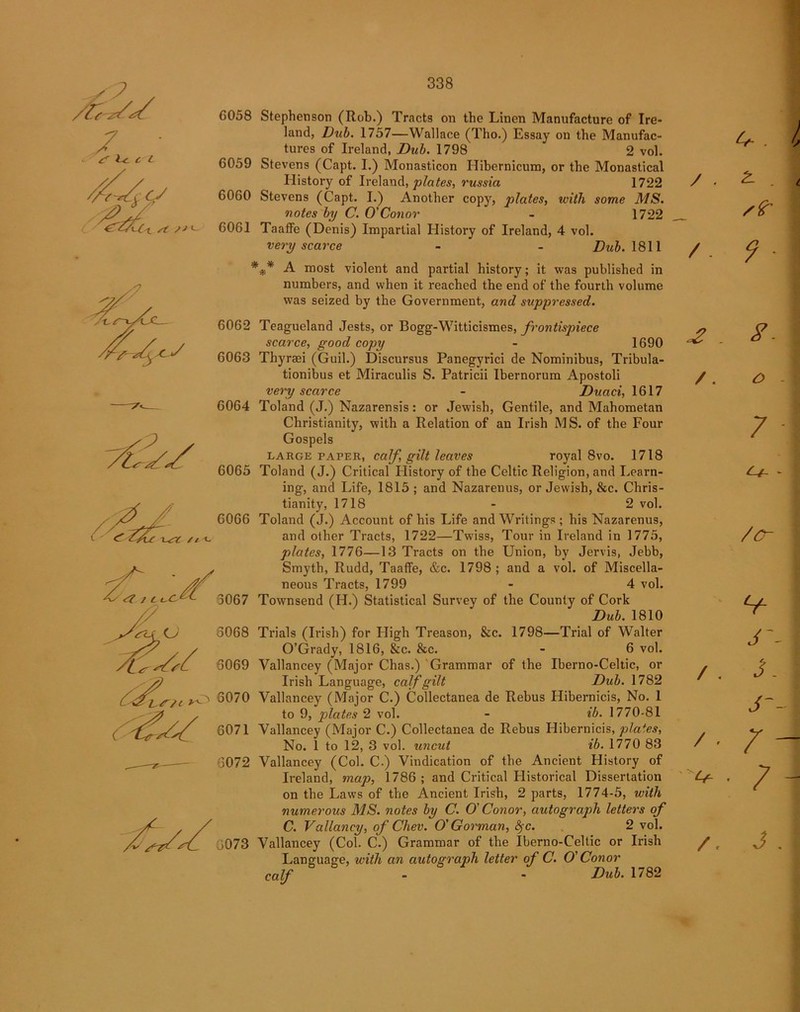 338
6058 Stephenson (Rob.) Tracts on the Linen Manufacture of Ire-
land, Dub. 1757—Wallace (Tho.) Essay on the Manufac-
tures of Ireland, Dub. 1798 2 vol.
6059 Stevens (Capt. I.) Monasticon Hibernicum, or the Monastical
History of Ireland, plates, russia 1722
6060 Stevens (Capt. I.) Another copy, plates, with some MS.
notes by C. O'Conor - 1722
6061 Taaffe (Denis) Impartial History of Ireland, 4 vol.
very scarce - - Dub. 1811
*** A most violent and partial history; it was published in
numbers, and when it reached the end of the fourth volume
was seized by the Government, and suppressed.
6062 Teagueland Jests, or Bogg-Witticismes, frontispiece
scarce, good copy - 1690
6063 Thyræi (Guil.) Discursus Panegyrici de Nominibus, Tribula-
tionibus et Miraculis S. Patricii Ibernorum Apostoli
very scarce - Duaci, 1617
6064 Toland (J.) Nazarensis: or Jewish, Gentile, and Mahometan
Christianity, with a Relation of an Irish MS. of the Four
Gospels
LARGE PAPER, calf, gilt leaves royal 8vo. 1718
6065 Toland (J.) Critical History of the Celtic Religion, and Learn-
ing, and Life, 1815; and Nazarenus, or Jewish, &c. Chris-
tianity, 1718 - 2 vol.
6066 Toland (J.) Account of his Life and Writings; his Nazarenus,
and other Tracts, 1722—Twiss, Tour in Ireland in 1775,
plates, 1776—13 Tracts on the Union, by Jervis, Jebb,
Smyth, Rudd, Taaffe, &c. 1798; and a vol. of Miscella-
neous Tracts, 1799 - 4 vol.
6067 Townsend (H.) Statistical Survey of the County of Cork
Dub. 1810
6068 Trials (Irish) for High Treason, &c. 1798—Trial of Walter
O'Grady, 1816, &c. &c. - 6 vol.
6069 Vallancey (Major Chas.) Grammar of the Iberno-Celtic, or
Irish Language, calf gilt Dub. 1782
6070 Vallancey (Major C.) Collectanea de Rebus Hibernicis, No. 1
to 9, plates 2 vol. - ib. 1770-81
6071 Vallancey (Major C.) Collectanea de Rebus Hibernicis, plates,
No. 1 to 12, 3 vol. uncut ib. 1770 83
6072 Vallancey (Col. C.) Vindication of the Ancient History of
Ireland, map, 1786; and Critical Historical Dissertation
on the Laws of the Ancient Irish, 2 parts, 1774-5, with
numerous MS. notes by C. O'Conor, autograph letters of
C. Vallancy, of Chev. O'Gorman, &c. 2 vol.
6073 Vallancey (Col. C.) Grammar of the Iberno-Celtic or Irish
Language, with an autograph letter of C. O'Conor
calf - - Dub. 1782